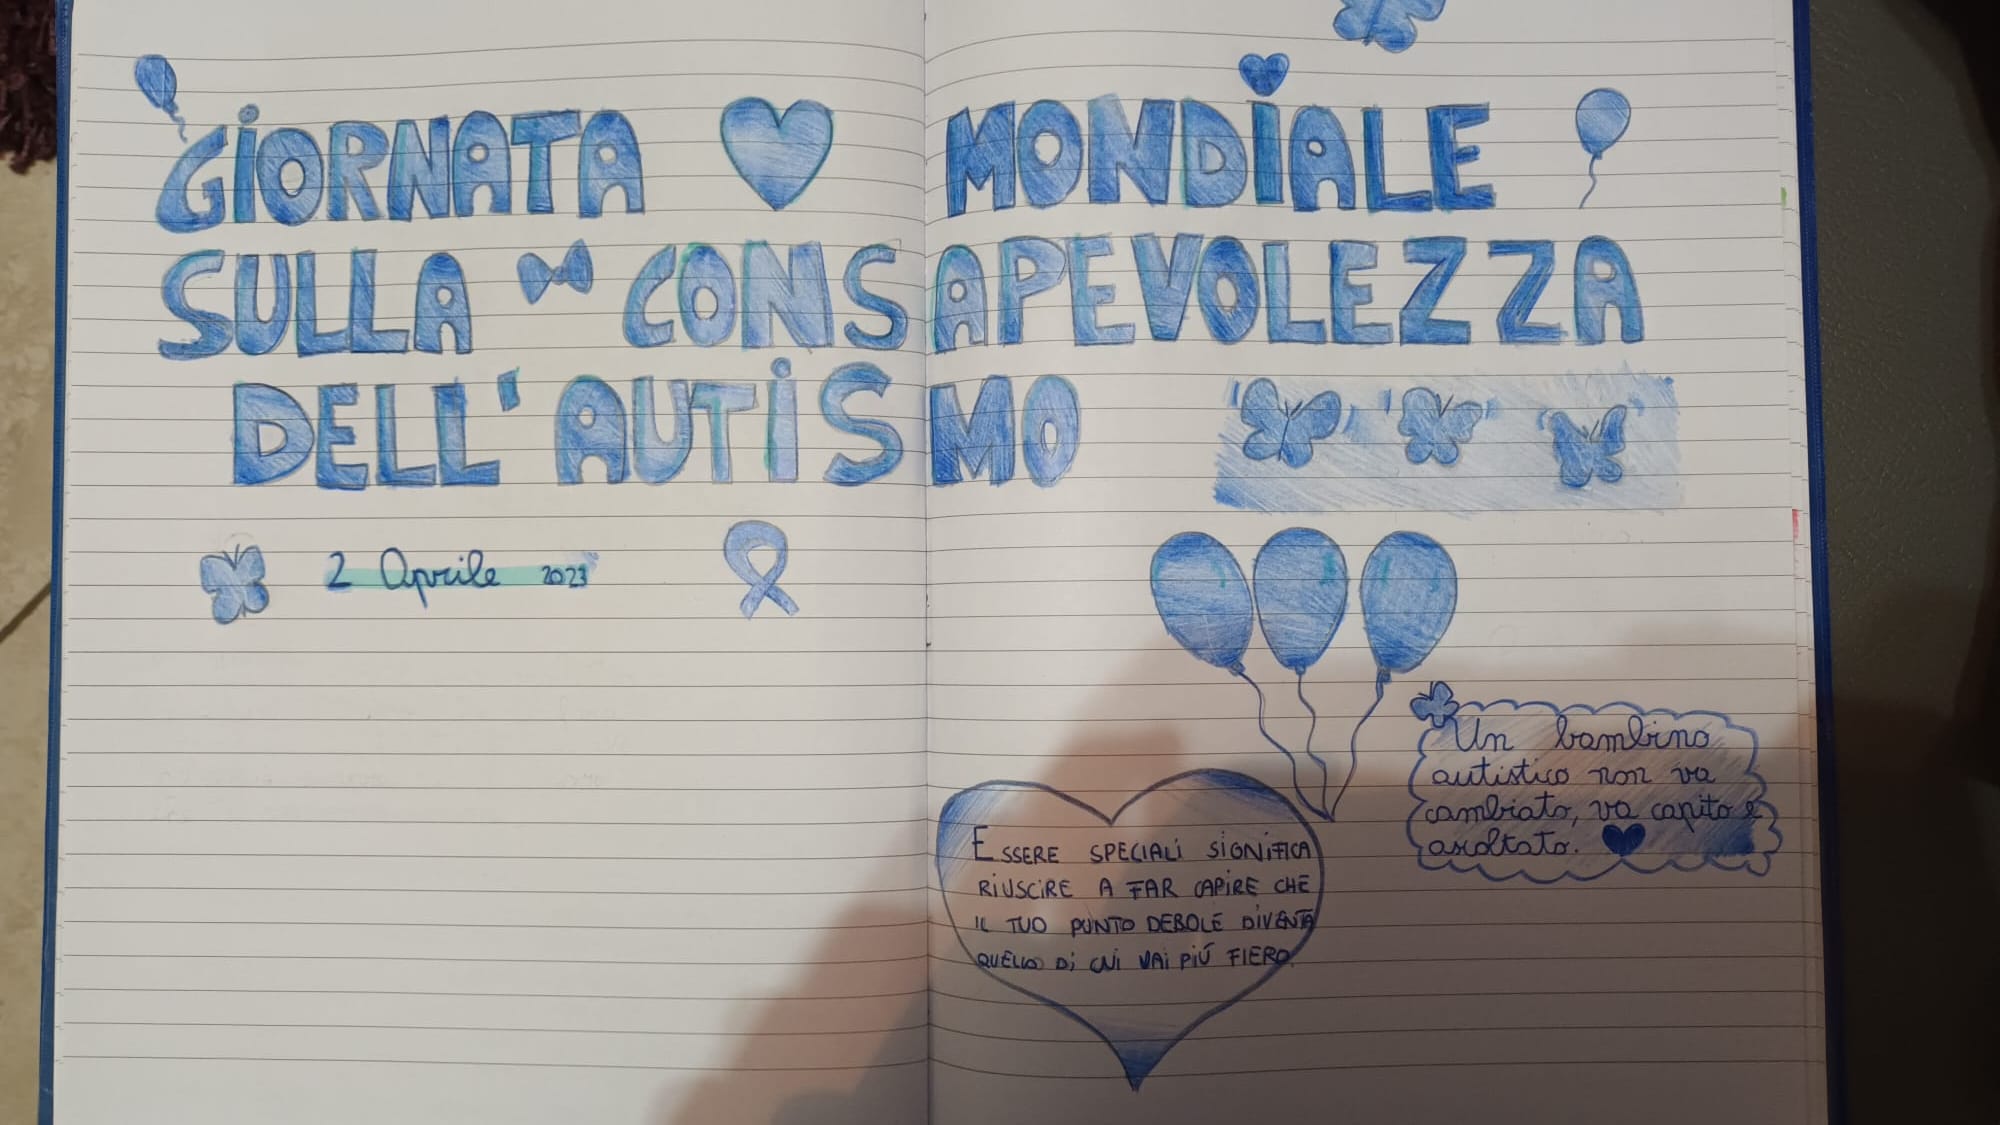 GiORNATA MONDiALE
SULLA CONSAPEVOLEZZA
DELL'AUTiSMO
2 Aprile 2023
ESSERE SPECIALi SiGNiFiCA
RiUSCiRE A FAR CAPiRE CHE
IL TUO PUNTO DEBOLE DiVENTA
QUELLO Di CUi VAi PiÚ FIERO.
Un bambino
autistico non va
cambiato, va capito e
ascoltato.